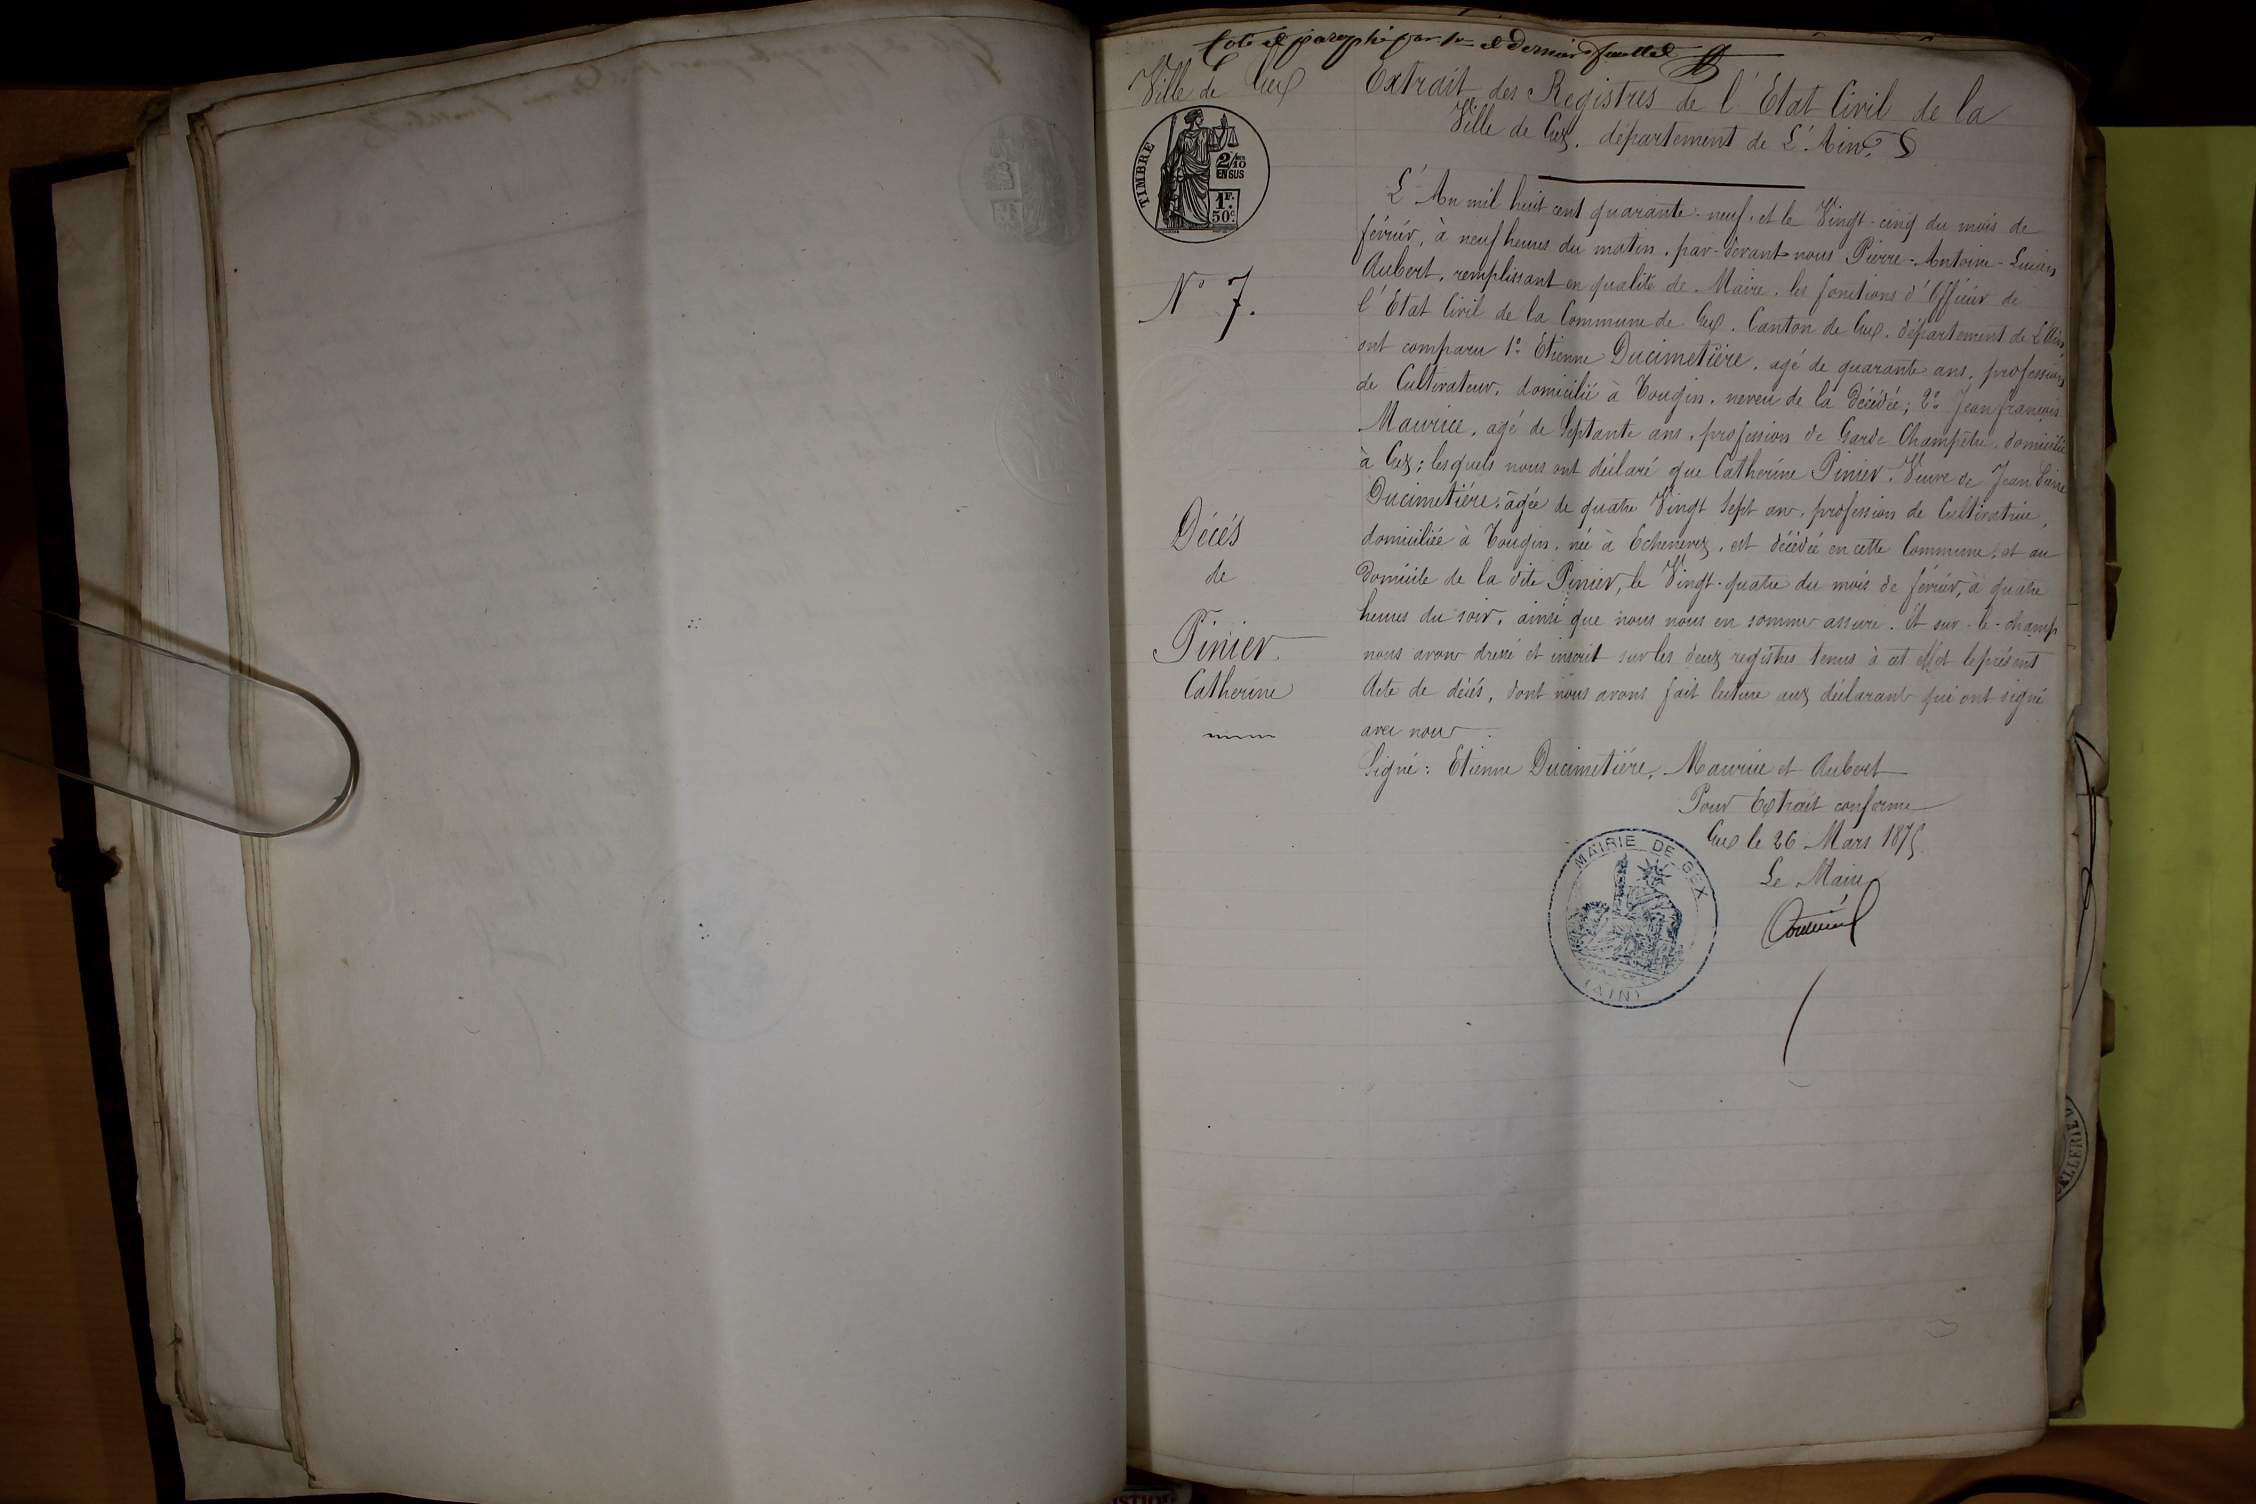 Coté et paraphé par 1er et dernier feuillet
Ville de Gex
Extrait des Registres de l'Etat Civil de la
Ville de Gex, département de L'Ain.
TIMBRE
2/10
EN SUS
1F.
50c.
L'An mil huit cent quarante-neuf, et le Vingt-cinq du mois de
février, à neuf heures du matin, par-devant nous Pierre-Antoine-Lucien
Aubert, remplissant en qualité de Maire, les fonctions d'Officier de
l'Etat Civil de la Commune de Gex, Canton de Gex, département de L'Ain,
ont comparu 1° Etienne Ducimetière, agé de quarante ans, profession
de Cultivateur, domicilié à Tougin, neveu de la Décédée; 2° Jean françois
Maurice, agé de Septante ans, profession de Garde Champêtre, domicilié
à Gex; lesquels nous ont déclaré que Catherine Pinier, Veuve de Jean Pierre
Ducimetière, âgée de quatre Vingt Sept ans, profession de Cultivatrice,
domiciliée à Tougin, née à Echenevex, est décédée en cette Commune, et au
domicile de la dite Pinier, le Vingt-quatre du mois de février, à quatre
heures du soir, ainsi que nous nous en sommes assuré. Et sur-le-champ
nous avons dressé et inscrit sur les deux registres tenus à cet effet le présent
Acte de décés, dont nous avons fait lecture aux déclarants qui ont signé
avec nous.
Signé: Etienne Ducimetiére, Maurice et Aubert
Pour Extrait conforme
Gex le 26 Mars 1875
Le Maire
N° 7.
Décés
de
Pinier
Catherine
MAIRIE DE GEX
(AIN)